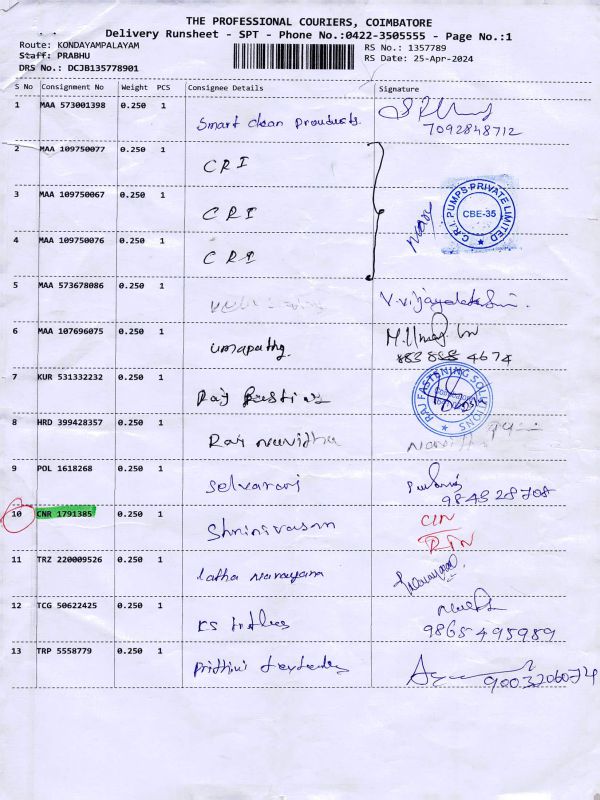 THE PROFESSIONAL COURIERS, COIMBATORE
Delivery Runsheet - SPT - Phone No.:0422-3505555 - Page No.:1
Route: KONDAYAMPALAYAM
RS No.: 1357789
Staff: PRABHU
RS Date: 25-Apr-2024
DRS No.: DCJB135778901
S No Consignment No Weight PCS Consignee Details Signature
1 MAA 573001398 0.250 1 Smart clean products
7092848712
2 MAA 109750077 0.250 1 CRI
3 MAA 109750067 0.250 1 CRI
C.R.I. PUMPS PRIVATE LIMITED
CBE-35
4 MAA 109750076 0.250 1 CRI
5 MAA 573678086 0.250 1 V.Vijayalakshmi
6 MAA 107696075 0.250 1 umapathy
4674
7 KUR 531332232 0.250 1 Raj
RAJ FASTENING SOLUTIONS
8 HRD 399428357 0.250 1 Raj
9 POL 1618268 0.250 1 Selvaraj
10 CNR 1791385 0.250 1 Shrinivasan
11 TRZ 220009526 0.250 1 latha narayana
12 TCG 50622425 0.250 1 KS
9865495989
13 TRP 5558779 0.250 1
9003206074